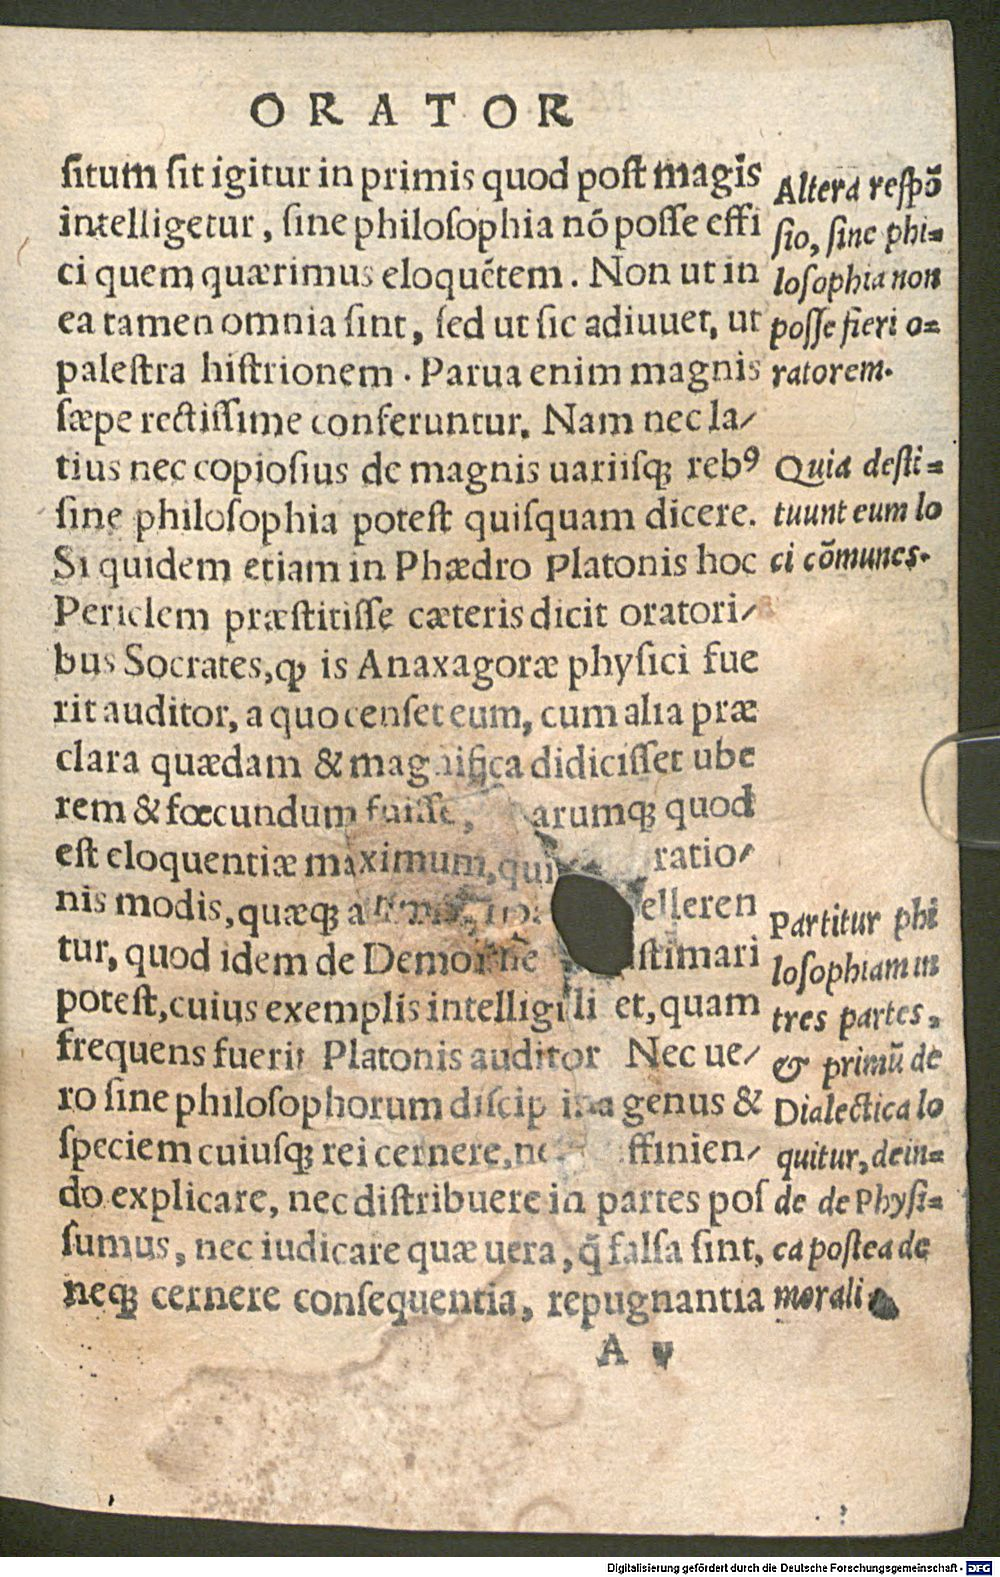 ORATOR
situm sit igitur in primis quod post magis
intelligetur, sine philosophia nō posse effi
ci quem quærimus eloquētem. Non ut in
ea tamen omnia sint, sed ut sic adiuuet, ut
palestra histrionem. Parua enim magnis
sæpe rectissime conferuntur. Nam nec la/
tius nec copiosius de magnis uariisqꝫ rebꝰ
sine philosophia potest quisquam dicere.
Si quidem etiam in Phædro Platonis hoc
Periclem præstitisse cæteris dicit oratori/
bus Socrates, ꝙ is Anaxagoræ physici fue
rit auditor, a quo censet eum, cum alia præ
clara quædam & magnifica didicisset ube
rem & fœcundum fuisse, arumqꝫ quod
est eloquentiæ maximum, qui ratio/
nis modis, quæqꝫ a elleren
tur, quod idem de Demo stimari
potest, cuius exemplis intelligi li et, quam
frequens fuerit Platonis auditor Nec ue/
ro sine philosophorum discip ina genus &
speciem cuiusqꝫ rei cernere, ne ffinien/
do explicare, nec distribuere in partes pos
sumus, nec iudicare quæ uera, q̄ falsa sint,
neqꝫ cernere consequentia, repugnantia
A v
Altera respō
sio, sine phi-
losophia non
posse fieri o-
ratorem.
Quia desti-
tuunt eum lo
ci cōmunes.
Partitur phi
losophiam in
tres partes,
& primū de
Dialectica lo
quitur, dein-
de de Physi-
ca postea de
morali
Digitalisierung gefördert durch die Deutsche Forschungsgemeinschaft - DFG